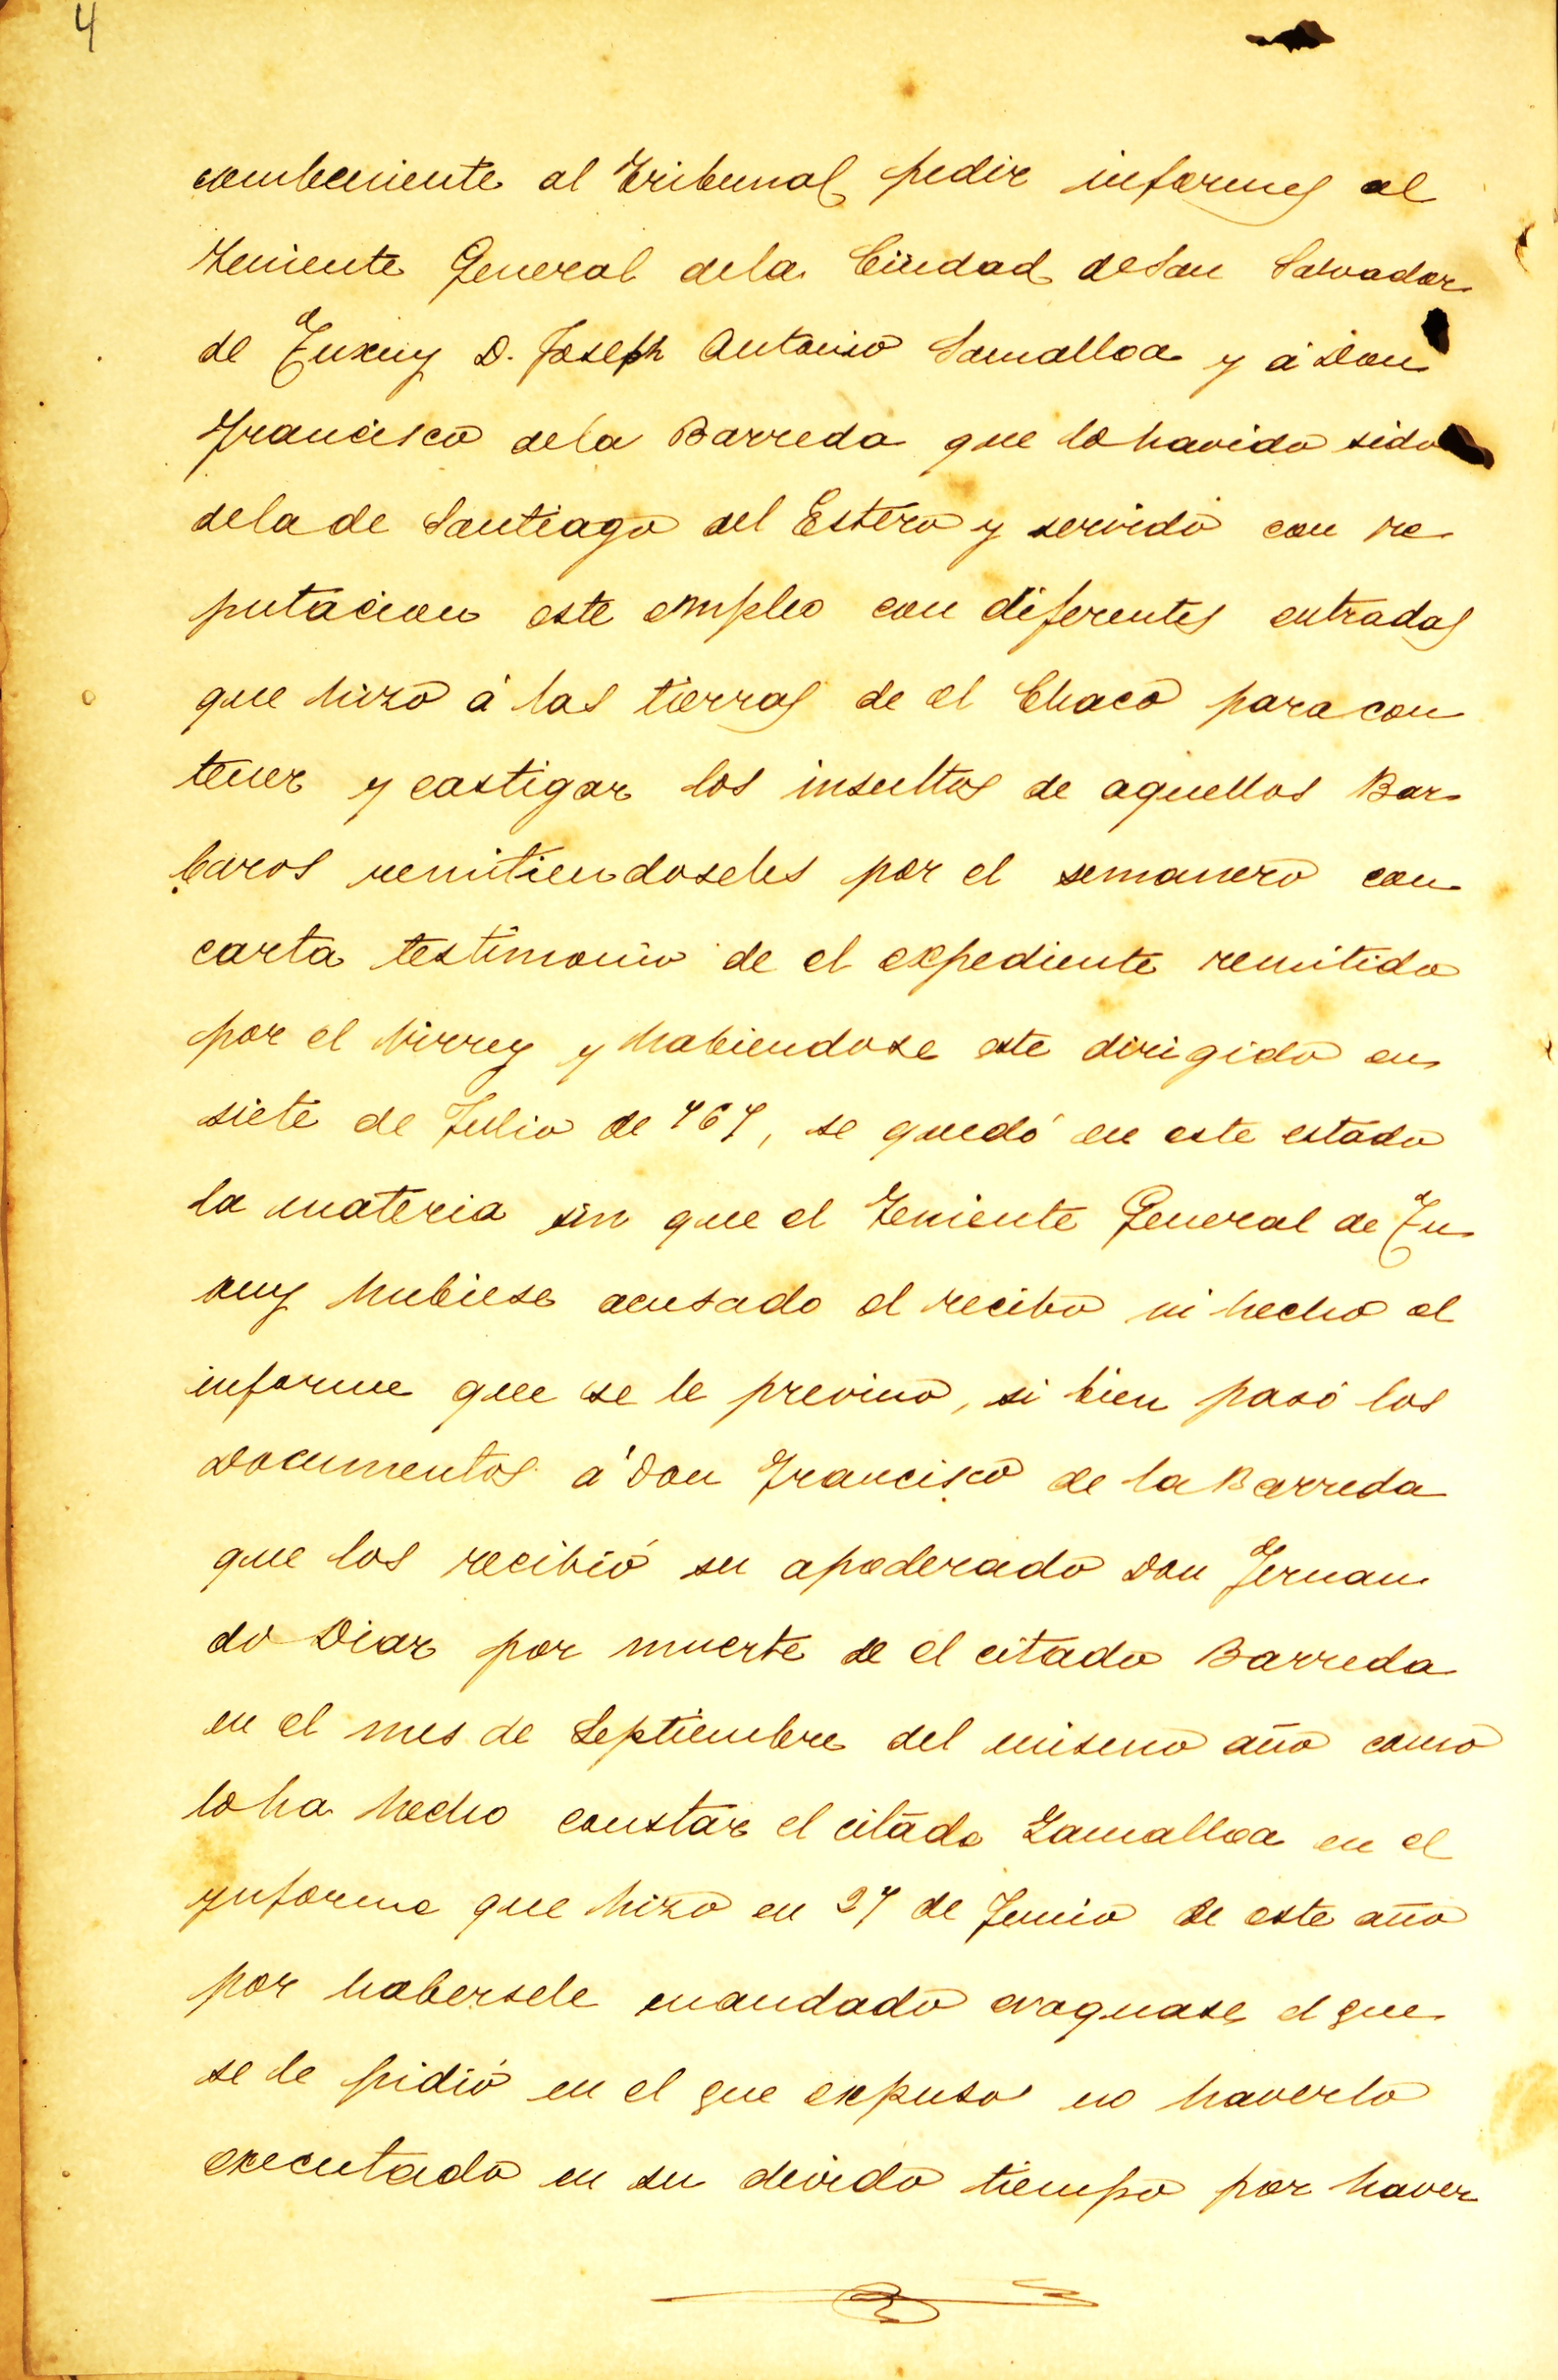 4
combeniente al Tribunal pedir informes al
Teniente General dela Ciudad de San Salvador
de Juxuy D. Joseph Antonio Samalloa y á Don
Francisco dela Barreda que lo havida sido
dela de Santiago del Estero y servido con re
putacion este empleo con diferentes entradas
que hizo á las tierras de el Chaco para con
tener y castigar los insultos de aquellos Bar
baros remitiendoseles por el semanero con
carta testimonio de el expediente remitido
por el Virrey y habiendose este dirigido en
siete de Julio de 767, se quedó en este estado
la materia sin que el Teniente General de Ju
xuy hubiese acusado el recibo ni hecho el
informe que se le previno, si bien pasó los
Documentos á Don Francisco de la Barreda
que los recibió su apoderado Don Fernan
do Diaz por muerte de el citado Barreda
en el mes de Septiembre del mismo año como
lo ha hecho constar el citado Zamalloa en el
ynforme que hizo en 27 de Junio de este año
por habersele mandado evaquase el que
se le pidió en el que expuso no haverlo
executado en su devido tiempo por haver